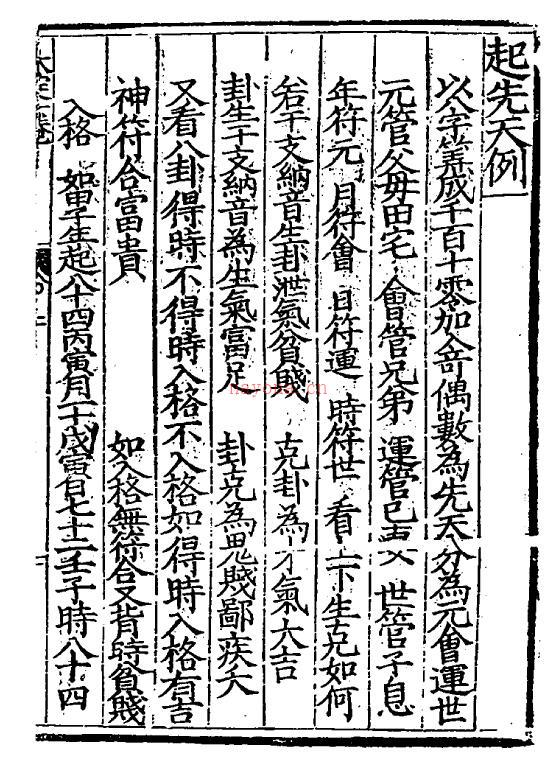 起先天例
以八字筭成千百十零加入奇偶數為先天分為元會運世
元管父母田宅會管兄弟運管己妻 世管子息
年符元月符會日符運時符世看上下生克如何
若干支納音生卦泄氣貧賤 克卦為才氣大吉
卦生干支納音為生氣富足 卦克為鬼賤鄙疾夭
又看八卦得時不得時入格不入格如得時入格有吉
神符合富貴 如入格無符合又背時貧賤
入格 如甲子年起八十四丙寅月二十戊寅日七十二壬子時八十四
nayona.cn